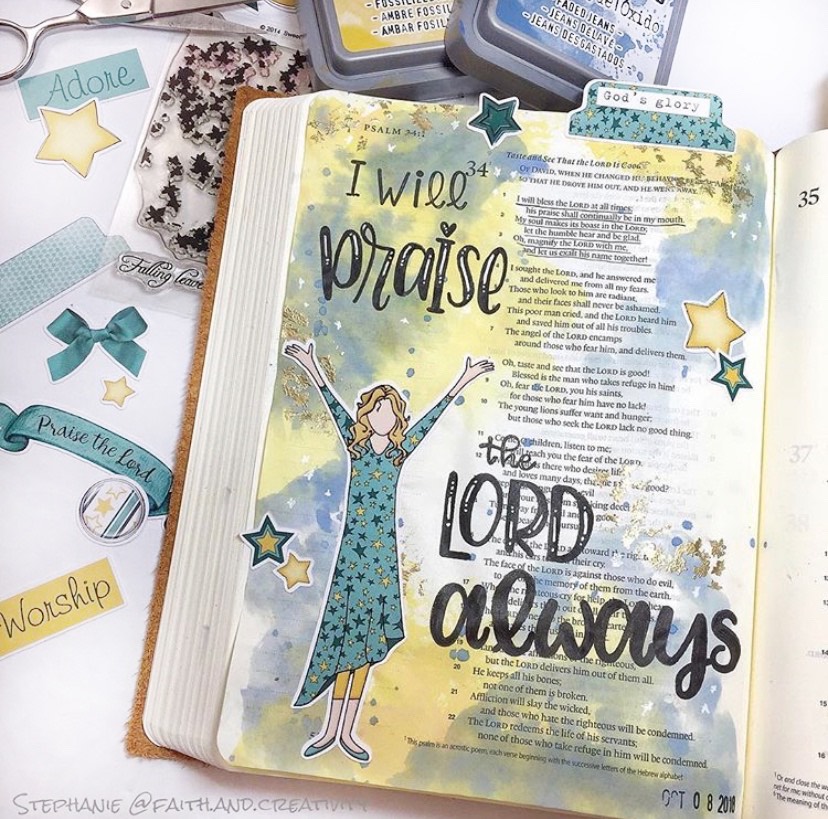 - FOSSILIZED
- AMBRE FOSSIL
- AMBAR FOSIL
Oxido
FADED JEANS -
- JEANS DÉLAVÉ -
- JEANS DESGASTADOS -
© 2014 Sweet
Adore
God's glory
PSALM 34:1
I will
praise
34
Taste and See That the LORD Is Good
OF DAVID, WHEN HE CHANGED HIS BEHAVIOR
SO THAT HE DROVE HIM OUT, AND HE WENT AWAY.
1 I will bless the LORD at all times;
his praise shall continually be in my mouth.
2 My soul makes its boast in the LORD;
let the humble hear and be glad.
3 Oh, magnify the LORD with me,
and let us exalt his name together!
I sought the LORD, and he answered me
and delivered me from all my fears.
Those who look to him are radiant,
and their faces shall never be ashamed.
This poor man cried, and the LORD heard him
and saved him out of all his troubles.
7 The angel of the LORD encamps
around those who fear him, and delivers them.
Oh, taste and see that the LORD is good!
Blessed is the man who takes refuge in him!
9 Oh, fear the LORD, you his saints,
for those who fear him have no lack!
10 The young lions suffer want and hunger;
but those who seek the LORD lack no good thing.
11 children, listen to me;
12 teach you the fear of the LORD.
is there who desires life
and loves many days, that good?
evil
speaking deceit
good
the
LORD
always
toward the
and his ears their cry.
The face of the LORD is against those who do evil,
the memory of them from the earth.
17 righteous cry for help
out of
20 He keeps all his bones;
not one of them is broken.
21 Affliction will slay the wicked,
and those who hate the righteous will be condemned.
22 The LORD redeems the life of his servants;
none of those who take refuge in him will be condemned.
¹ This psalm is an acrostic poem, each verse beginning with the successive letters of the Hebrew alphabet
OCT 0 8 2018
Falling leave
Praise the Lord
Worship
35
37
16
STEPHANIE @FAITH.AND.CREATIVITY